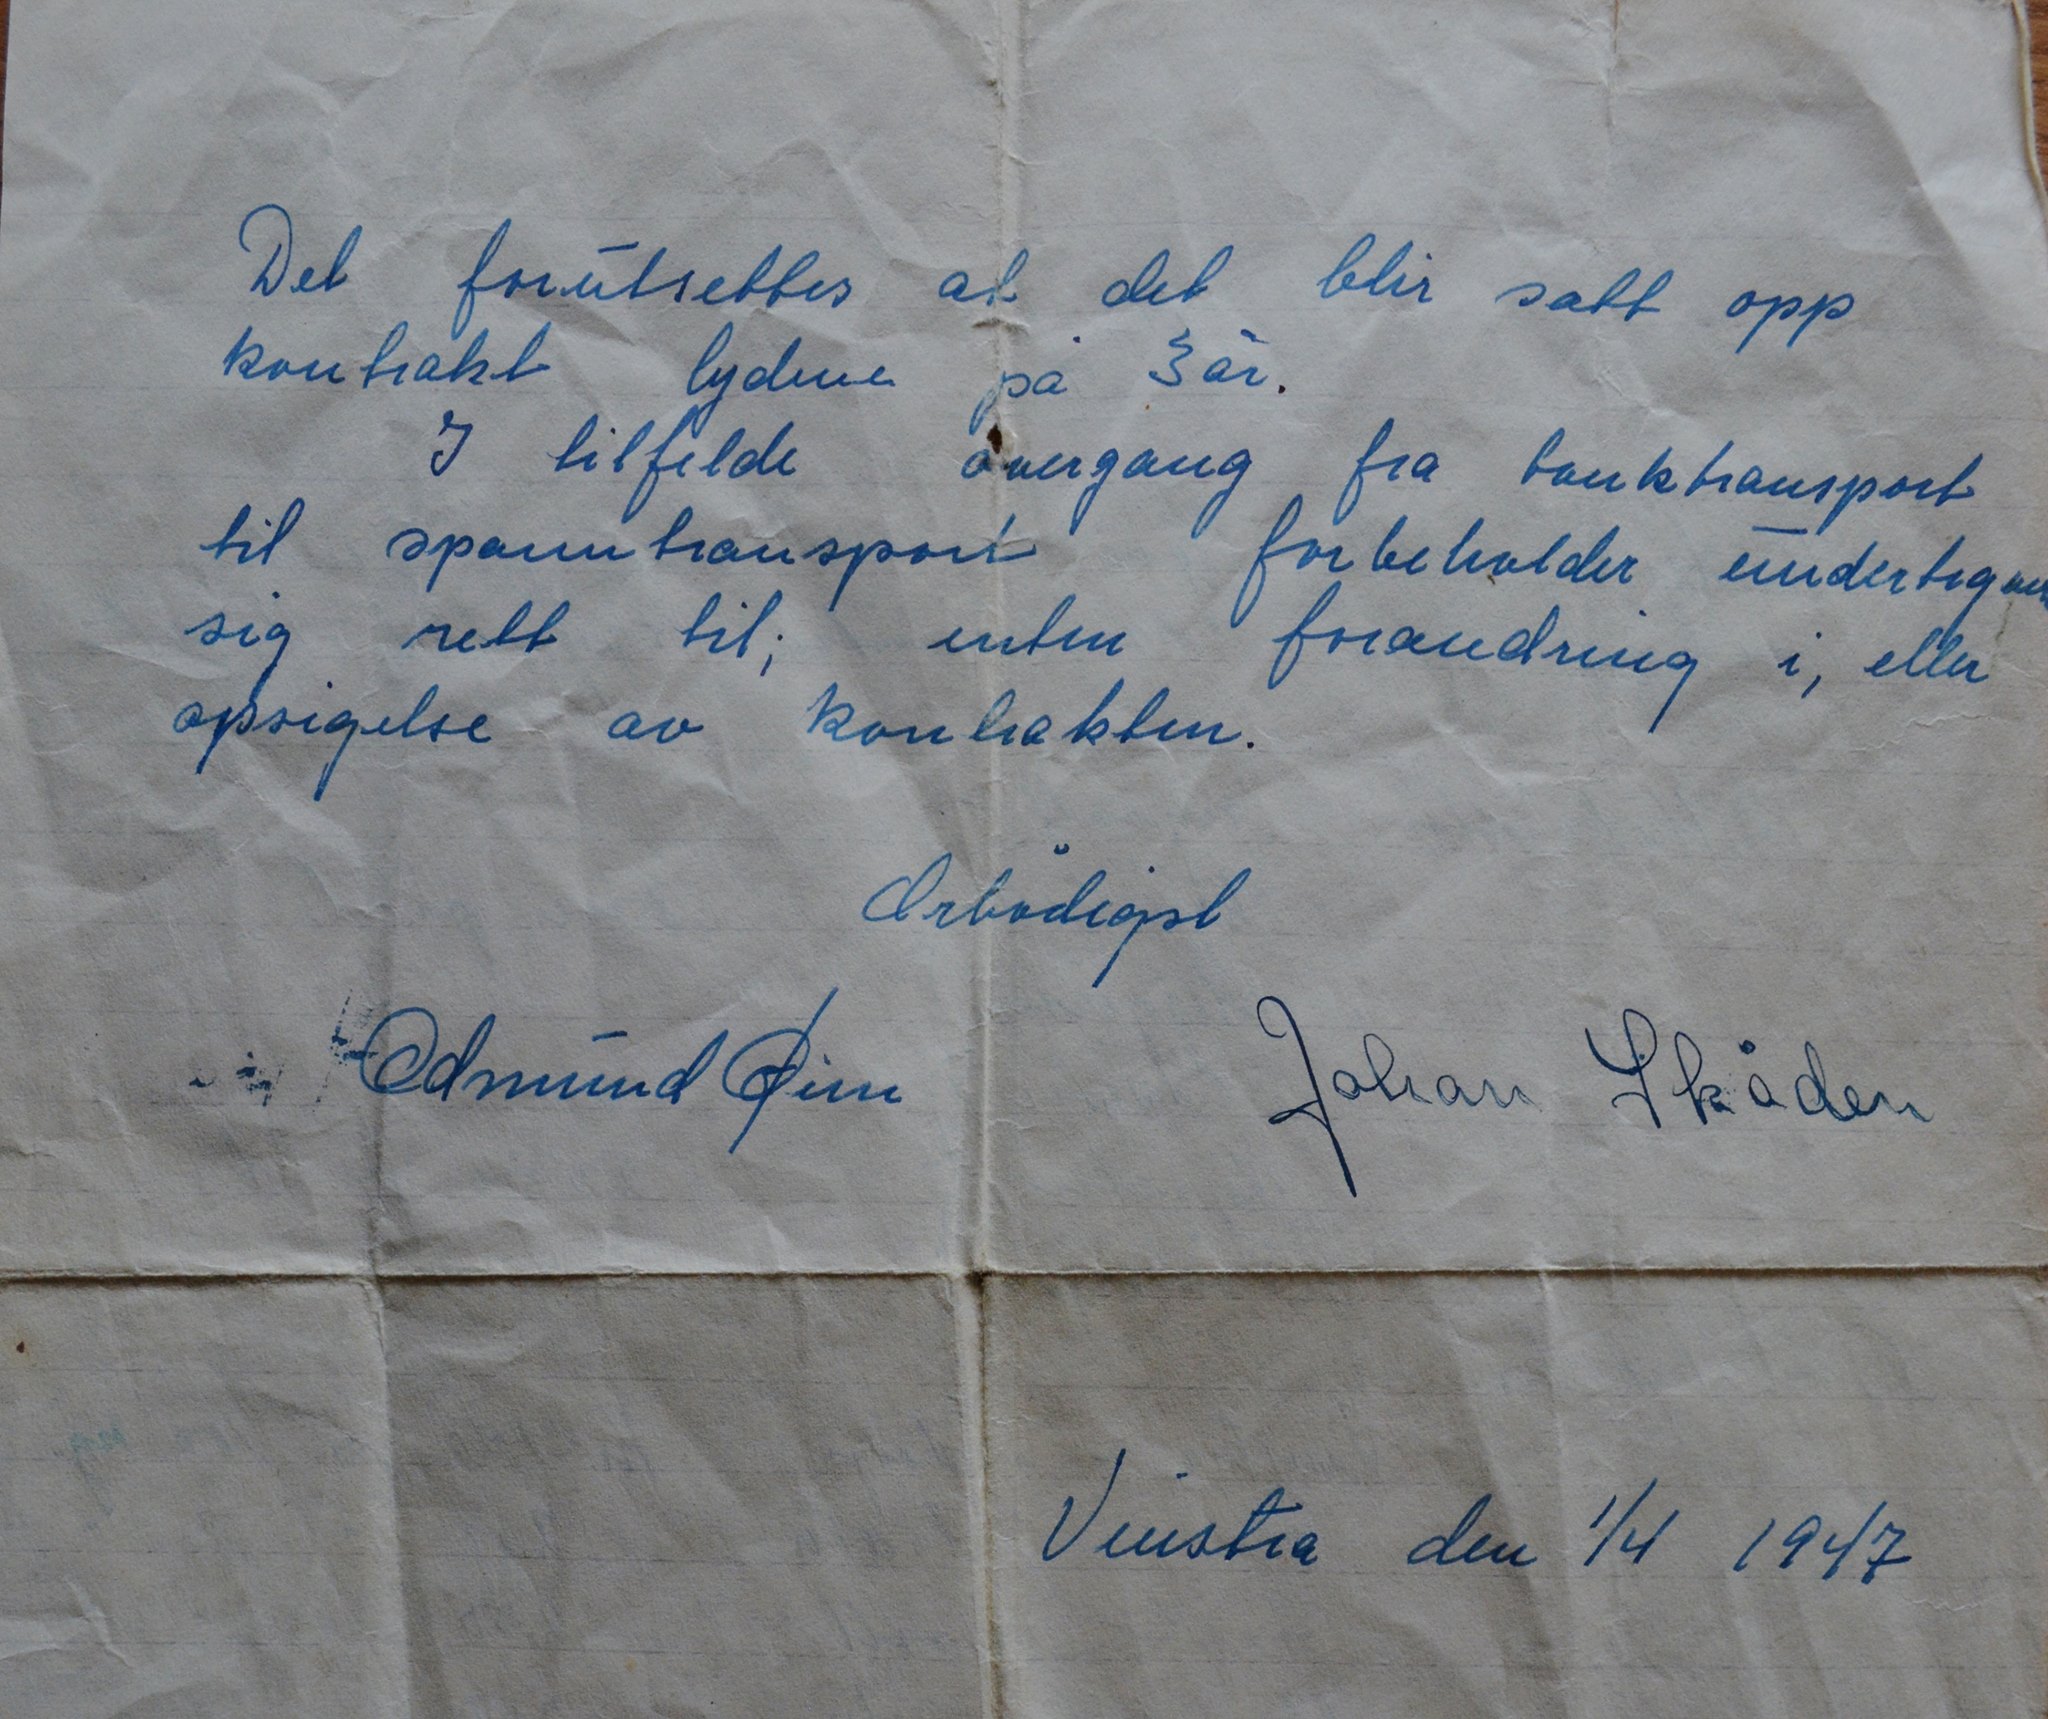 Det forutsettes at det blir satt opp
kontrakt lydene på 3 år.
I tilfelde overgang fra tanktransport
til spanntransport forbeholder undertegnene
sig rett til; enten forandring i, eller
opsigelse av kontrakten.
Ærbödigst
Edmund Øien Johan Skåden
Vinstra den 1/4 1947